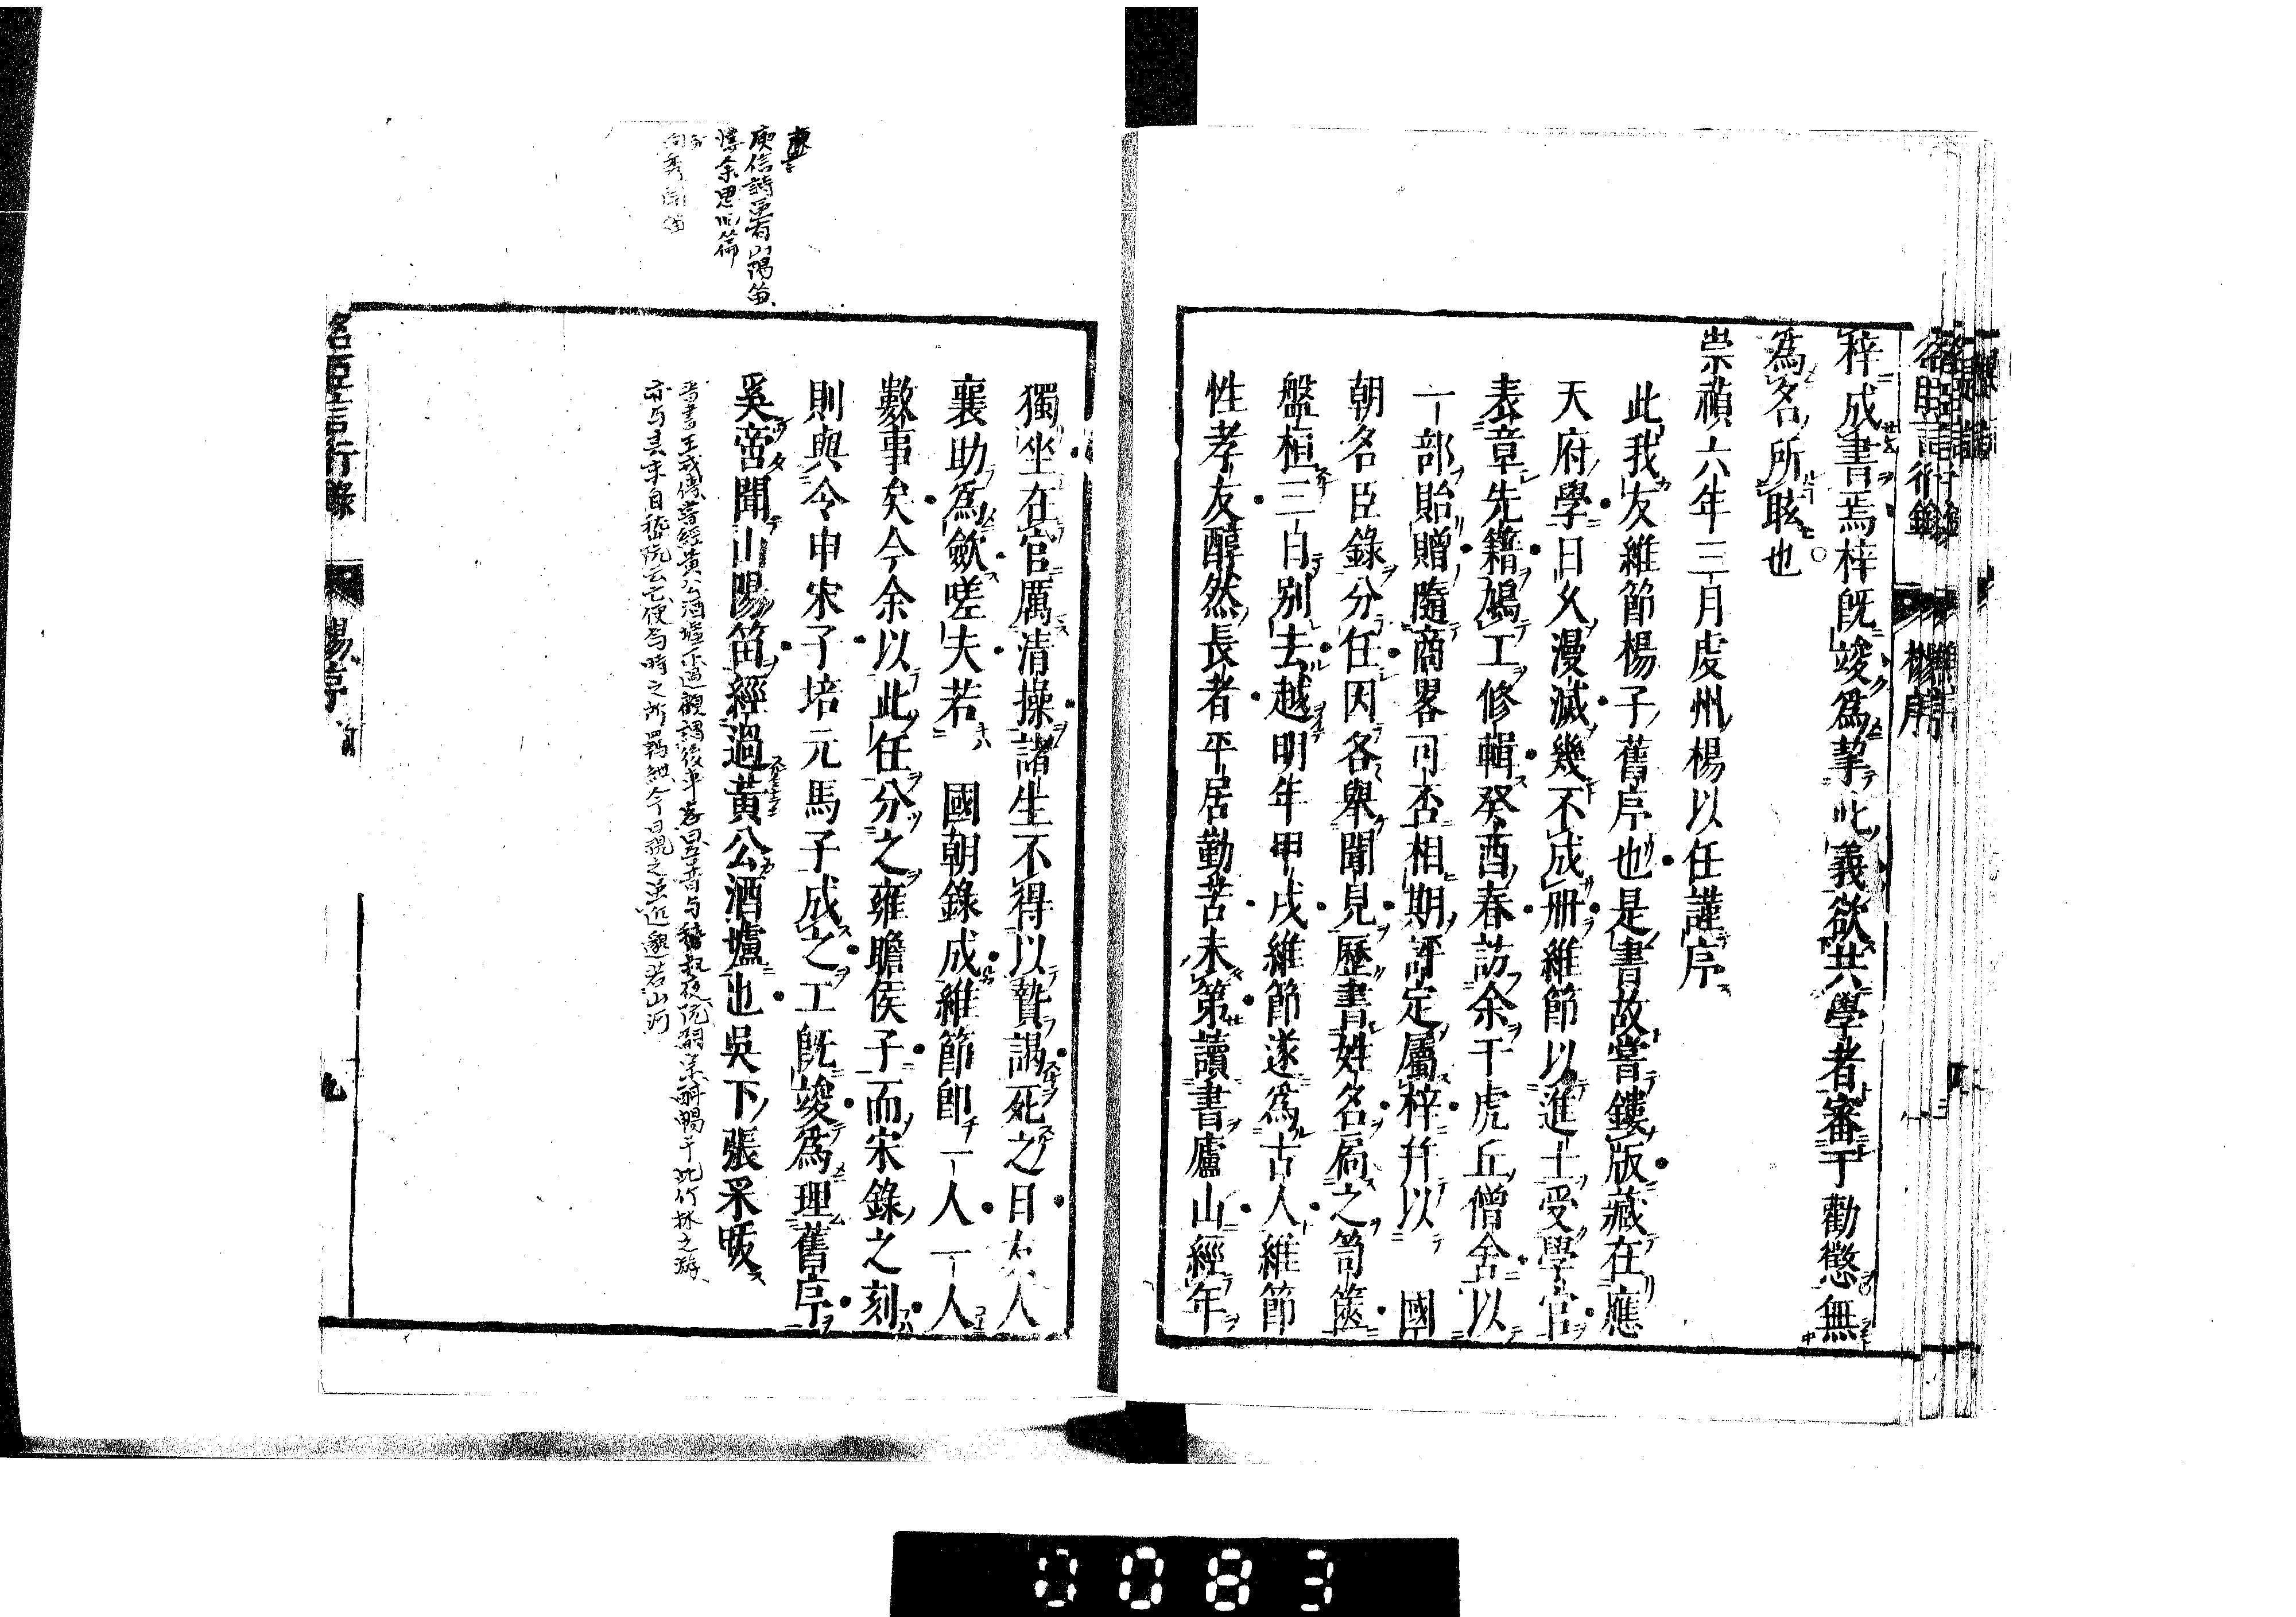 梓成書焉梓既竣爲挈此義欲共學者審于勸懲無
爲名所眩也
崇禎六年三月虔州楊以任謹序
此我友維節楊子舊序也是書故嘗鏤版藏在應
天府學日久漫滅幾不成册維節以進士受學官
表章先籍鳩工修輯癸酉春訪余于虎丘僧舍以
一部貽贈隨商畧可否相期訂定屬梓幷以　國
朝名臣錄分任因各舉聞見歷書姓名扄之笥篋
盤桓三日別去越明年甲戌維節遂爲古人維節
性孝友醇然長者平居勤苦未第讀書廬山經年
獨坐在官厲清操諸生不得以贄謁死之日友人
襄助爲斂嗟夫若　國朝錄成維節卽一人一人
數事矣今余以此任分之雍瞻侯子而宋錄之刻
則與令申宋子培元馬子成之工既竣爲理舊序
奚啻聞山陽笛經過黃公酒壚也吳下張采跋
晋書王戎傳嘗經黃公酒壚下過顧謂後車客曰吾昔与嵆叔夜阮嗣宗酣暢于此竹林之游
亦与其末自嵆阮云亡便爲時之所羈紲今日視之雖近邈若山河
庾信詩
山陽笛
名臣言行錄
楊序
九
0083